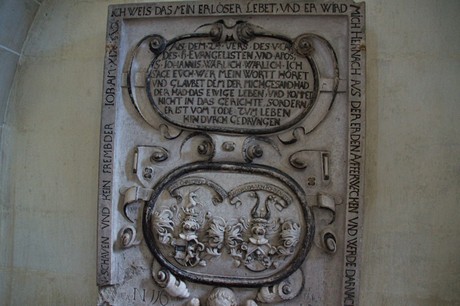 ICH WEIS DAS MEIN ERLOSER LEBET, UND ER WIRD
MICH HERNACH AUS DER ERDEN AUFFERWECKEN UND WERDE DARNACH
SCHAVEN UND KEIN FREMBDER
IOB AM
DEM 24 VERS DES V CA
DES H EVANGELISTEN UND APOS
S IOHANNIS WARLICH WARLICH ICH
SAGE EVCH WER MEIN WORTT HÖRET
UND GLAVBET DEM DER MICH GESAND HAD
DER HAD DAS EWIGE LEBEN UND KOMPET
NICHT IN DAS GERICHTE SONDERN
ER IST VOM TODE ZUM LEBEN
HIN DURCH GEDRUNGEN